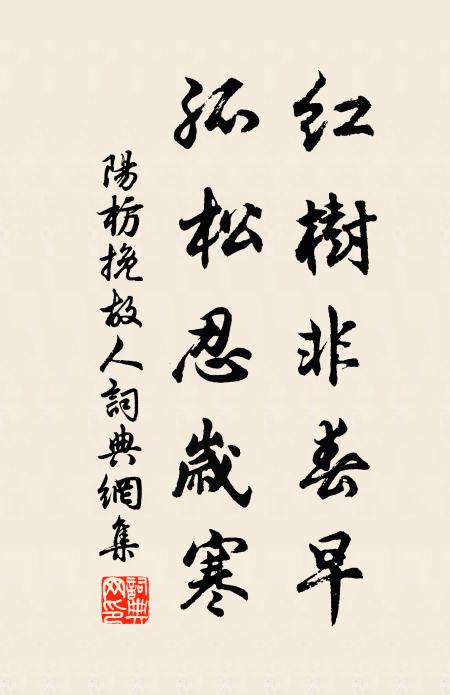 紅樹非春早
孤松忍歲寒
陽枋挽故人詞典網集
詞典網印